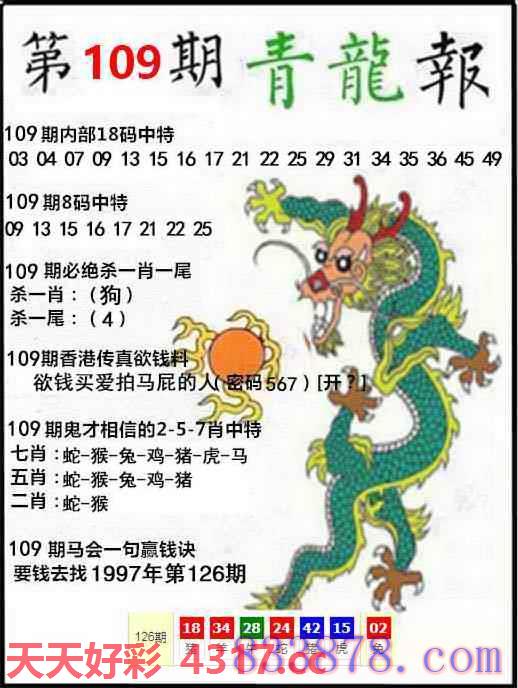 第109期 青龍報
109期内部18码中特
03 04 07 09 13 15 16 17 21 22 25 29 31 34 35 36 45 49
109期8码中特
09 13 15 16 17 21 22 25
109期必绝杀一肖一尾
杀一肖：（狗）
杀一尾：（4）
109期香港传真欲钱料
欲钱买爱拍马屁的人（密码567）[开？]
109期鬼才相信的2-5-7肖中特
七肖：蛇-猴-兔-鸡-猪-虎-马
五肖：蛇-猴-兔-鸡-猪
二肖：蛇-猴
109期马会一句赢钱诀
要钱去找1997年第126期
126期 18 34 28 24 42 15 02
猪 羊 牛 蛇 猪 虎 兔
天天好彩 4317.cc